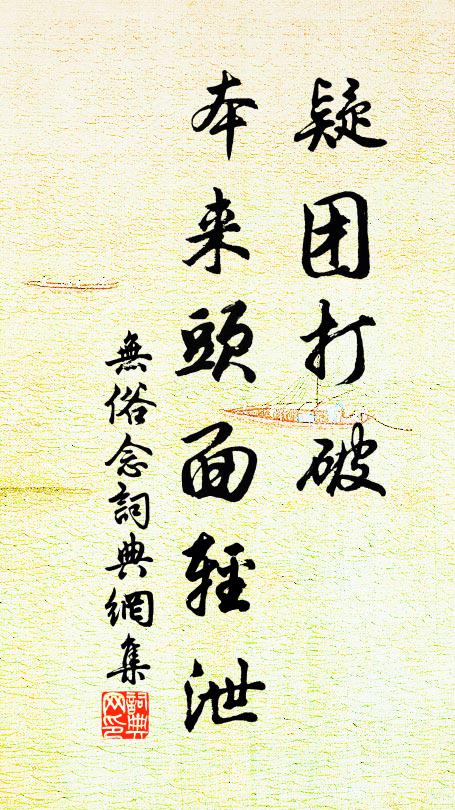 疑团打破
本来頭面輕泄
無俗念詞典網集
詞典网印